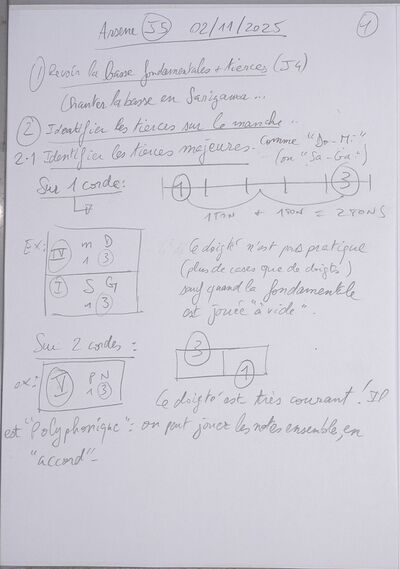 Arsene J5 02/11/2025 1
① Revoir la basse fondamentales + tierces (J4)
Chanter la basse en Sarigama...
② Identifier les tierces sur le manche..
2.1 Identifier les tierces majeures. comme "Do-Mi"
(ou "Sa-Ga")
Sur 1 corde:
1 3
1TON + 1TON = 2TONS
Ex:
IV m D
1 3
I S G
1 3
Ce doigté n'est pas pratique
(plus de cases que de doigts)
sauf quand la fondamentale
est jouée "à vide".
Sur 2 cordes:
3
1
ex:
V P N
1 3
Ce doigté est très courant! Il
est "Polyphonique": on peut jouer les notes ensemble, en
"accord".